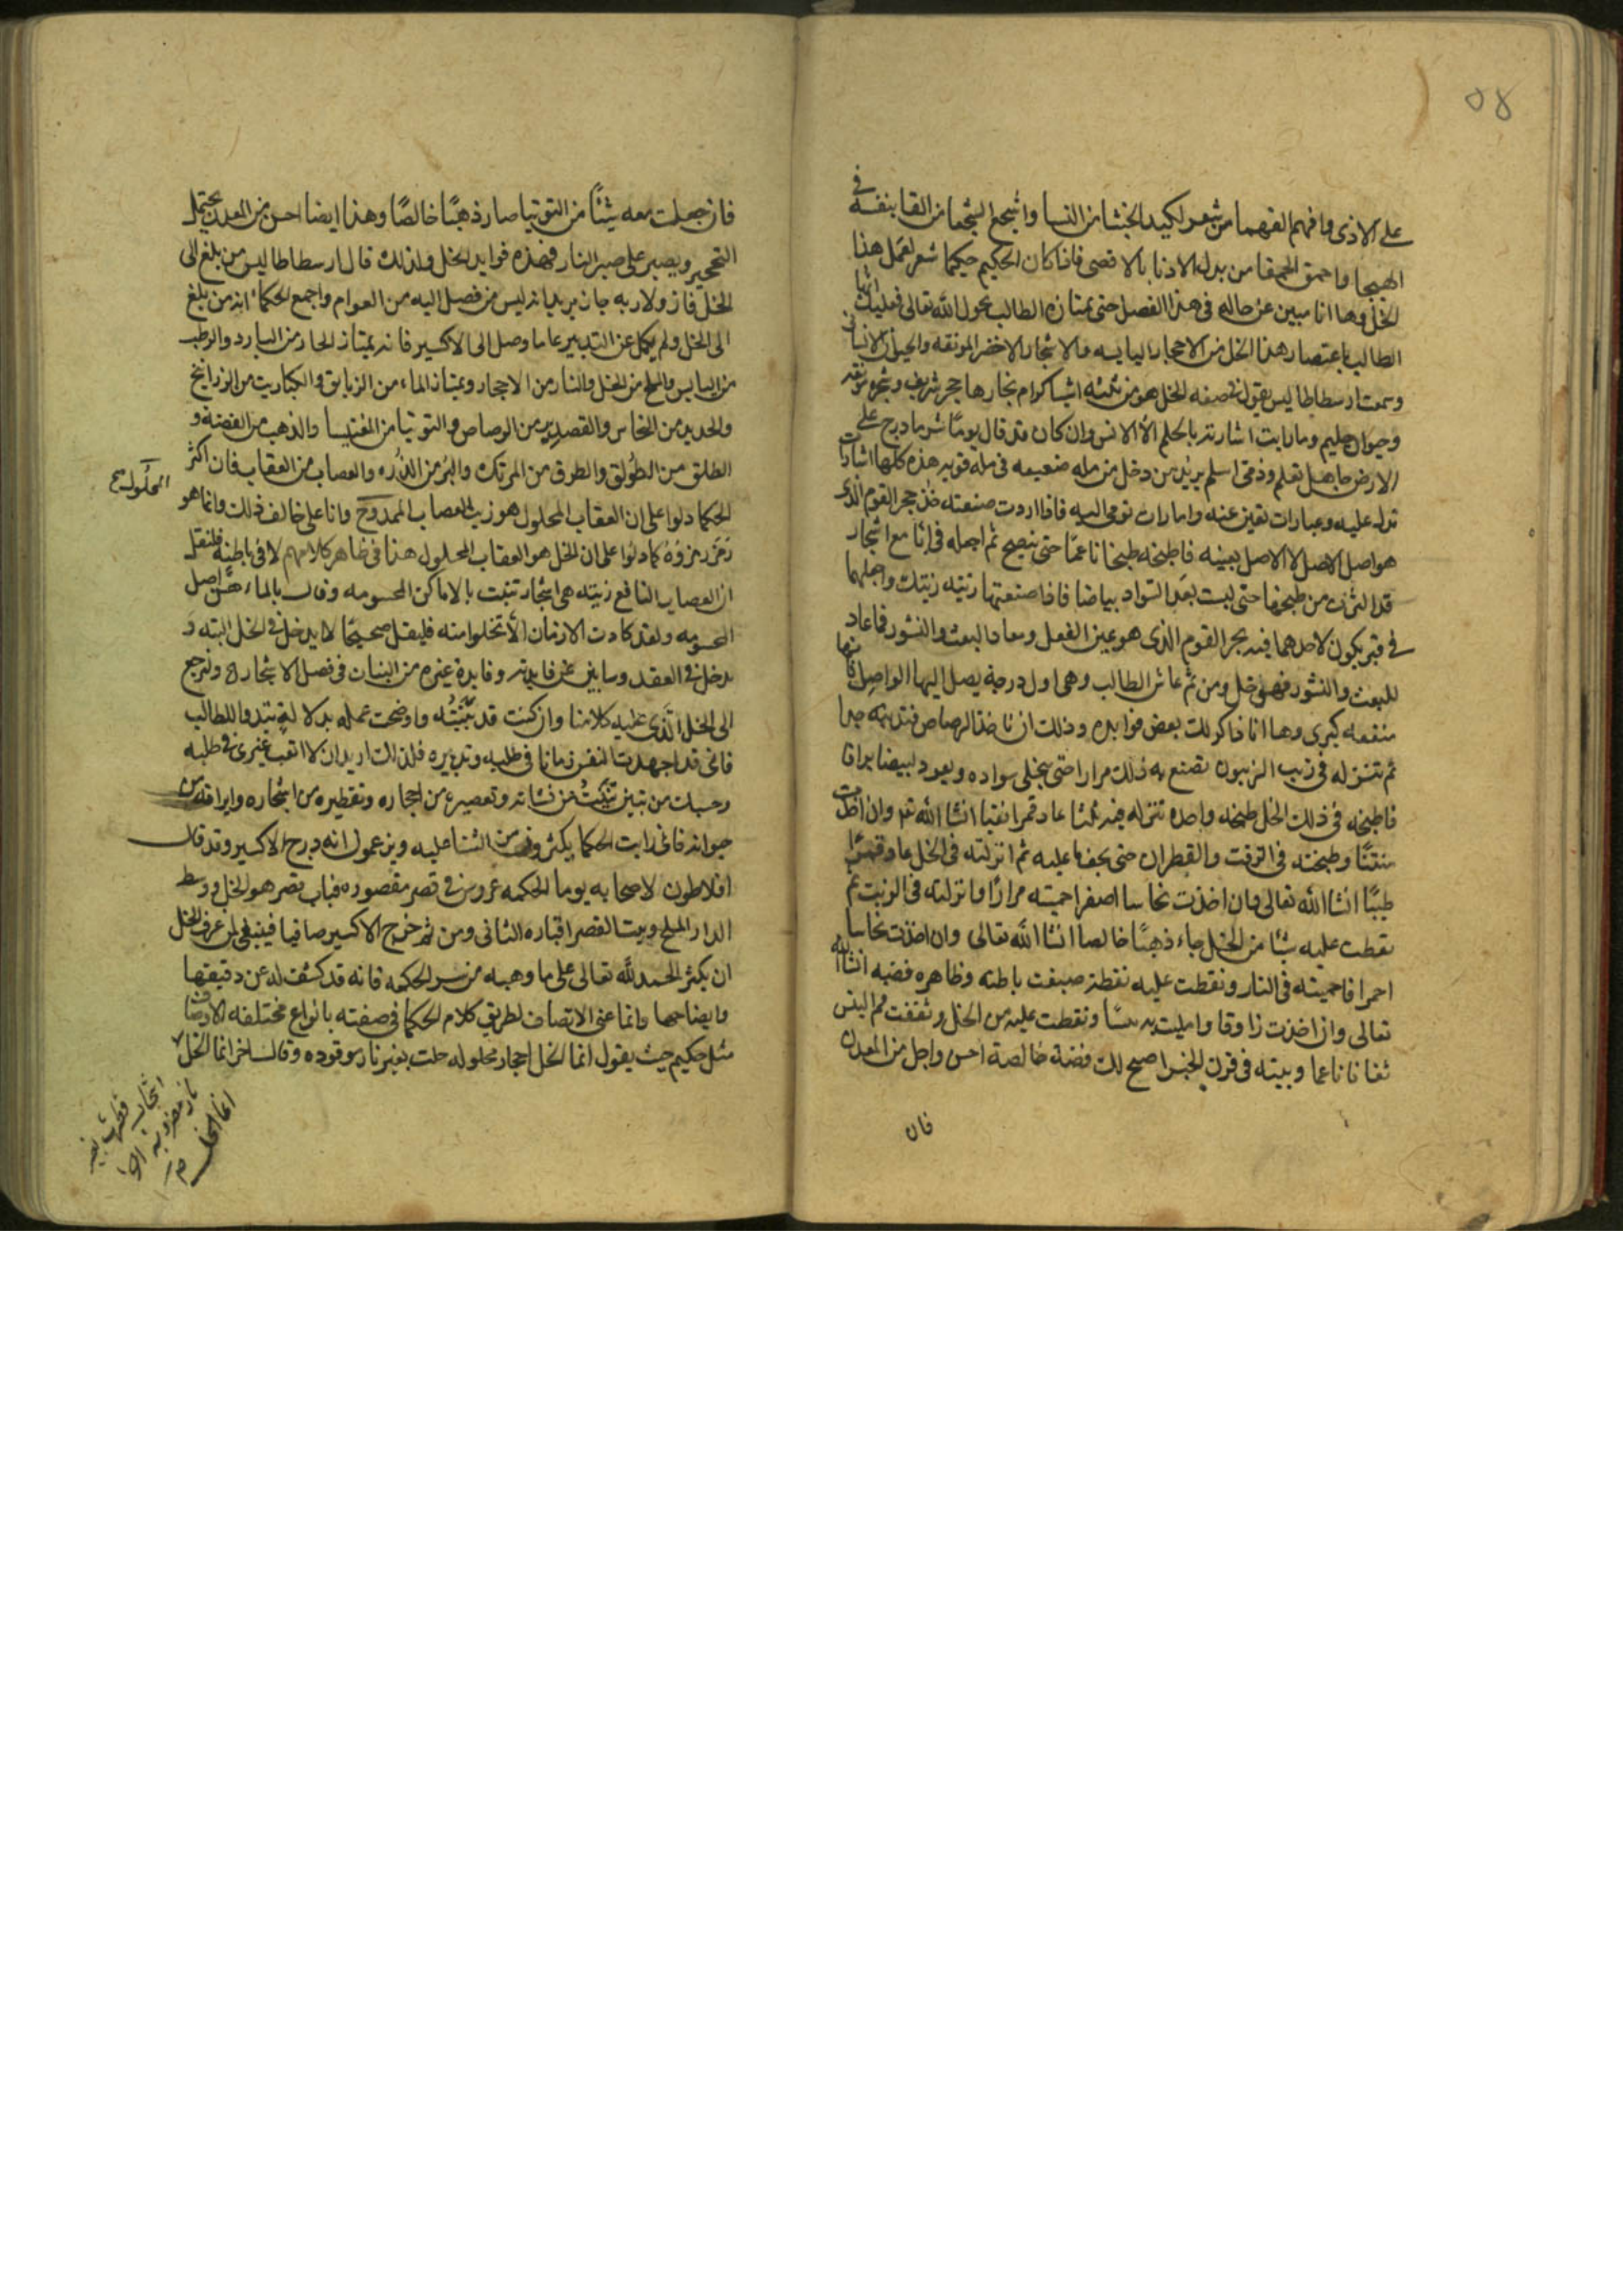 ٥٨
على الاذى وافهم الفهما من شعر لكيد الخنثا من النسا واشجع الشجعا من القا بنفسه في
الهيجا واحمق الحمقا من بدل الادنا بالاقصى فاذا كان الحكيم حكيما شعر لعمل هذا
الخل وها انا مبين عن حاله في هذا الفصل حتى يمتازه الطالب بحول الله تعالى فعليك ايها
الطالب باعتصار هذا الخل من الاحجار اليابسه والاشجار الاخضر المونقه والحيوان الانساني
وسمت ارسطاطاليس يقول في صفه الخل هو من ثلثه اشيا كرام نجارها حجر شريف وشجره مونقه
وحيوان حليم وما رايت اشارته بالحلم الا الانس وان كان قد قال يومًا شر ما درج على
الارض جاهل تعلم وذمى اسلم يريد من دخل من مله ضعيفه في مله قويه هذه كلها اشارات
تدل عليه وعبارات تغين عنه وامارات تومى اليه فاذا اردت صنعته خذ حجر القوم الذى
هو اصل الاصل لا الاصل بعينه فاطبخه طبخا ناعمًا حتى ينضج ثم اجعله في انا مع اشجار
قد اثرت من طبخها حتى لبست بعد السواد بياضا فاذا صنعتها زنته زنتك واجعلهما
في قبر يكون لاحدهما فيه بحر القوم الذى هو عين الفعل ومعاد البعث والنشور فما عاد
للبعث والنشور فهو خل ومن ثم عاش الطالب وهى اول درجة يصل اليها الواصل فانها
منفعه كبرى وها انا ذاكر لك بعض فوايده وذلك ان تاخذ الرصاص فتذيبه جيدا
ثم تنزله في زيت الزيتون تصنع به ذلك مرارا حتى ينجلى سواده ويعود ابيضا براقا
فاطبخه في ذلك الخل طبخه واحده تنزله فيه ثلثا عاد قمرا نقيا انشا الله تع وان اخذت
منتنًا وطبخته في الزفت والقطران حتى يجف ما عليه ثم انزلته في الخل عاد قمرًا
طيبًا انشا الله تعالى وان اخذت نحاسا اصفرا حميته مرارًا وانزلته في الزيت ثم
نقطت عليه شيًا من الخل جاء ذهبًا خالصا انشا الله تعالى وان اخذت نحاسا
احمرا فاحميته في النار ونقطت عليه نقطة صبغت باطنه وظاهره فضه انشا الله
تعالى وان اخذت زاوقا وامليت به ونقطت عليه من الخل وثقفت فم
ثقافا ناعما وبيته في فرن الخبز اصبح لك فضة خالصة احسن واجل من المعدن
فان
فان جعلت معه شيئًا من التوتيا صار ذهبًا خالصًا وهذا ايضا احسن من المعدن يحتمل
التحجير ويصبر على صبر النار فهذه فوايد الخل ولذلك قال ارسطاطاليس من بلغ الى
الخل فاز ولا ربه جاز يريد انه ليس من فصل اليه من العوام واجمع الحكماء انه من بلغ
الى الخل ولم يكل عن التدبير عاما وصل الى الاكسير فانه يمتاز الحار من البارد والرطب
من اليابس والملح من الخل والنار من الاحجار ويمتاز الماء من الزيابق والكباريت من الزرانيخ
والحديد من النحاس والقصدير من الرصاص والتوتيا من المغنيسا والذهب من الفضه و
الطلق من الطولق والطرق من المرتك والبر من الذره والعصاب من العقاب فان اكثر
الحكما دلوا على ان العقاب المحلول هو زيت العصاب الممدوح وانا على خالف ذلك وانما هو
رمز رمزوه كما دلوا على ان الخل هو العقاب المحلول هذا في ظاهر كلامهم لا في باطنه فلنقل
ان العصاب النافع زنيته هى اشجار تنبت بالاماكن المحسومه وقال بالماء اصل
المحسومه ولقد كادت الازمان الا تخلوا منه فليقل صحيحًا لا يدخل في الخل البته و
يدخل في العقد وسابين عن فايدته وفايدة غيره من النبات في فصل الاشجار ولنرجع
الى الخل الذى عليه كلامنا وان كنت قد بينته واوضحت عمله بدلالة تبدوا للطالب
فانى قد اجهدت النفس زمانا في طلبه وتدبيره فلذلك اريد ان لا اتعب غيرى في طلبه
وحسبك من تبين من نشاته وتعصيره من احجاره وتقطيره من اشجاره وايراقه من
حيوانه فانى رايت الحكما يكثرون من الثنا عليه ويزعمون انه درج الاكسير وقد قال
افلاطون لاصحابه يوما الحكمه عروس في قصر مقصوره فباب قصر هو الخل ووسط
الدار الملح وبيت القصر اقباره الثانى ومن ثم خرج الاكسير صافيا فينبغى لمن عرف الخل
ان يكثر الحمد لله تعالى على ما وهبه من سر الحكمه فانه قد كشف له عن دقيقها
وايضاحها وانما عنى الاتصاف لطريق كلام الحكما في صفته بانواع مختلفه الاوصا
مثل حكيم حيث يقول انما الخل احجار محلوله حلت بغير نار موقوده وقال اخر انما الخل
المحلول
اشجار قطرت بغير
نار مضروبه
انما الخل